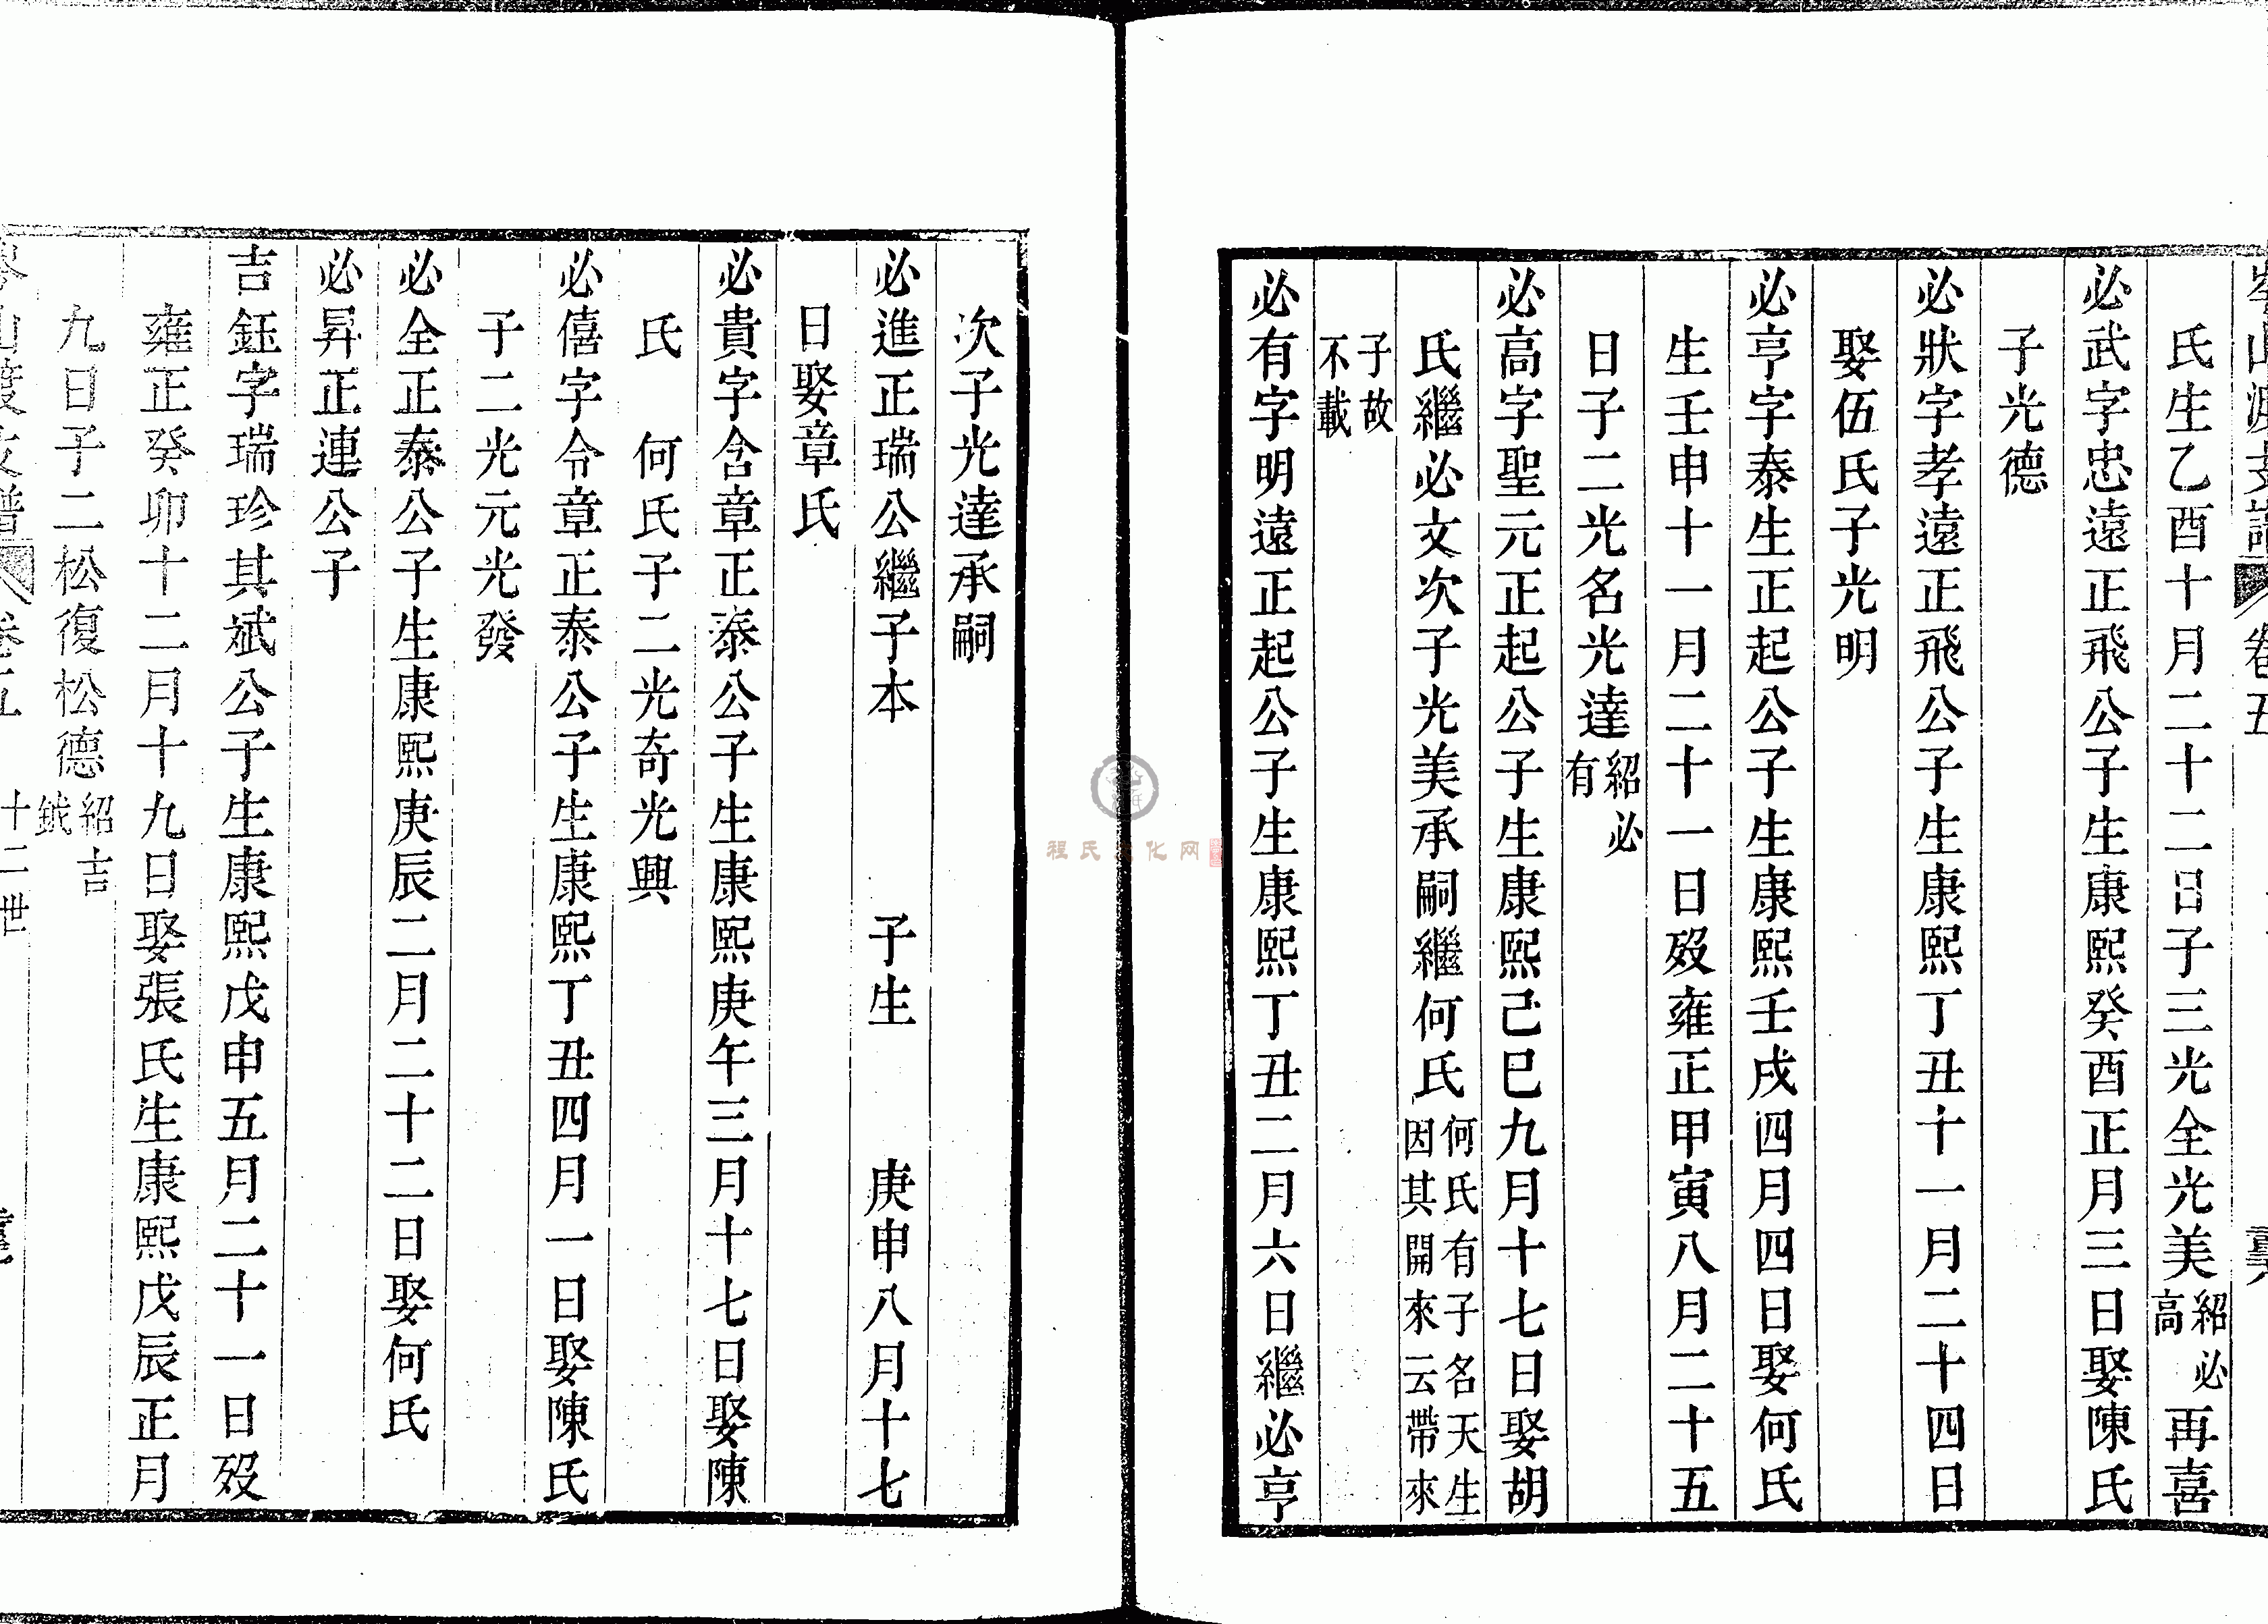 岑山渡支譜 卷五
氏生乙酉十月二十二日子三光全光美紹必高再喜
必武字忠遠正飛公子生康熙癸酉正月三日娶陳氏
子光德
必狀字孝遠正飛公子生康熙丁丑十一月二十四日
娶伍氏子光明
必亨字泰生正起公子生康熙壬戌四月四日娶何氏
生壬申十一月二十一日歿雍正甲寅八月二十五
日子二光名光達紹必有
必高字聖元正起公子生康熙己巳九月十七日娶胡
氏繼必文次子光美承嗣繼何氏何氏有子名天生因其開來云帶來
子故不載
必有字明遠正起公子生康熙丁丑二月六日繼必亨
次子光達承嗣
必進正瑞公繼子本 子生 庚申八月十七
日娶章氏
必貴字含章正泰公子生康熙庚午三月十七日娶陳
氏 何氏子二光奇光興
必僖字令章正泰公子生康熙丁丑四月一日娶陳氏
子二光元光發
必全正泰公子生康熙庚辰二月二十二日娶何氏
必昇正連公子
吉鈺字瑞珍其斌公子生康熙戊申五月二十一日歿
雍正癸卯十二月十九日娶張氏生康熙戊辰正月
九日子二松復松德紹吉鉞
岑山渡支譜 卷五 十二世
程氏文化网